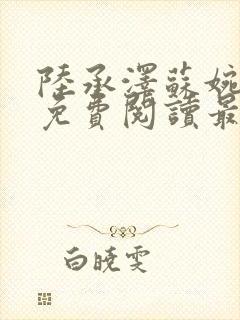 陸承澤蘇婉
免費閱讀最
白曉雯